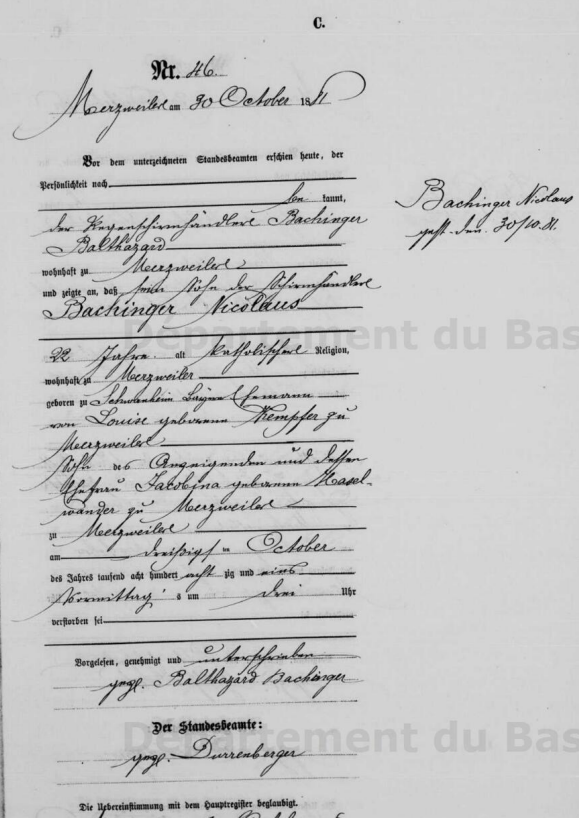 C.
Nr. 46.
Merzweiler am 30 October 1881
Vor dem unterzeichneten Standesbeamten erschien heute, der
Persönlichkeit nach
be kannt,
der Regenschirmhändler Bachinger
Balthazard
wohnhaft zu Merzweiler
und zeigte an, daß sein Sohn der Schirmhändler
Bachinger Nicolaus
22 Jahre alt katholischer Religion,
wohnhaft zu Merzweiler
geboren zu Schwanheim Bayern Ehemann
von Louise geborene Kempfer zu
Merzweiler
Sohn des Anzeigenden und dessen
Ehefrau Jacobina geborene Hasel-
wander zu Merzweiler
zu Merzweiler
am dreißigst en October
des Jahres tausend acht hundert acht zig und eins
Vormittag s um drei Uhr
verstorben sei
Vorgelesen, genehmigt und unterschrieben
gez. Balthazard Bachinger
Der Standesbeamte:
gez. Durrenberger
Die Uebereinstimmung mit dem Hauptregister beglaubigt.
Bachinger Nicolaus
gest. den 30/10.81.
Département du Bas
Département du Bas